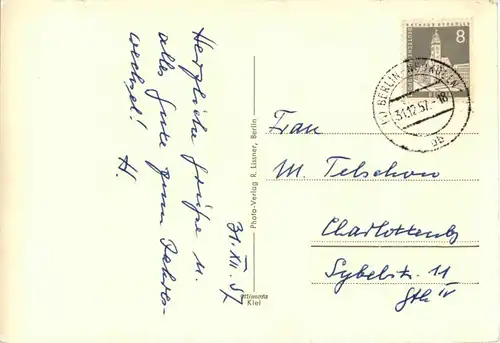 Herzliche Grüße u.
alles Gute zum Jahres-
wechsel!
H.
31. XII. 57
Photo-Verlag R. Lissner, Berlin
Kiel
8
BERLIN-NEUKÖLLN
31.12.57.-18
Frau
M. Telschow
Charlottenbg
Sybelstr. 11
Gth IV